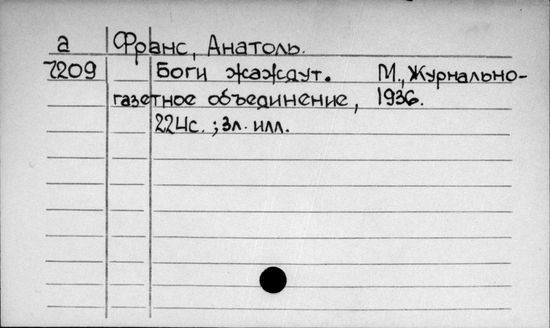 а Франс, Анатоль.
7209 Боги жаждут. М., Журнально-
газетное объединение, 1936.
224с. ; 3л. илл.